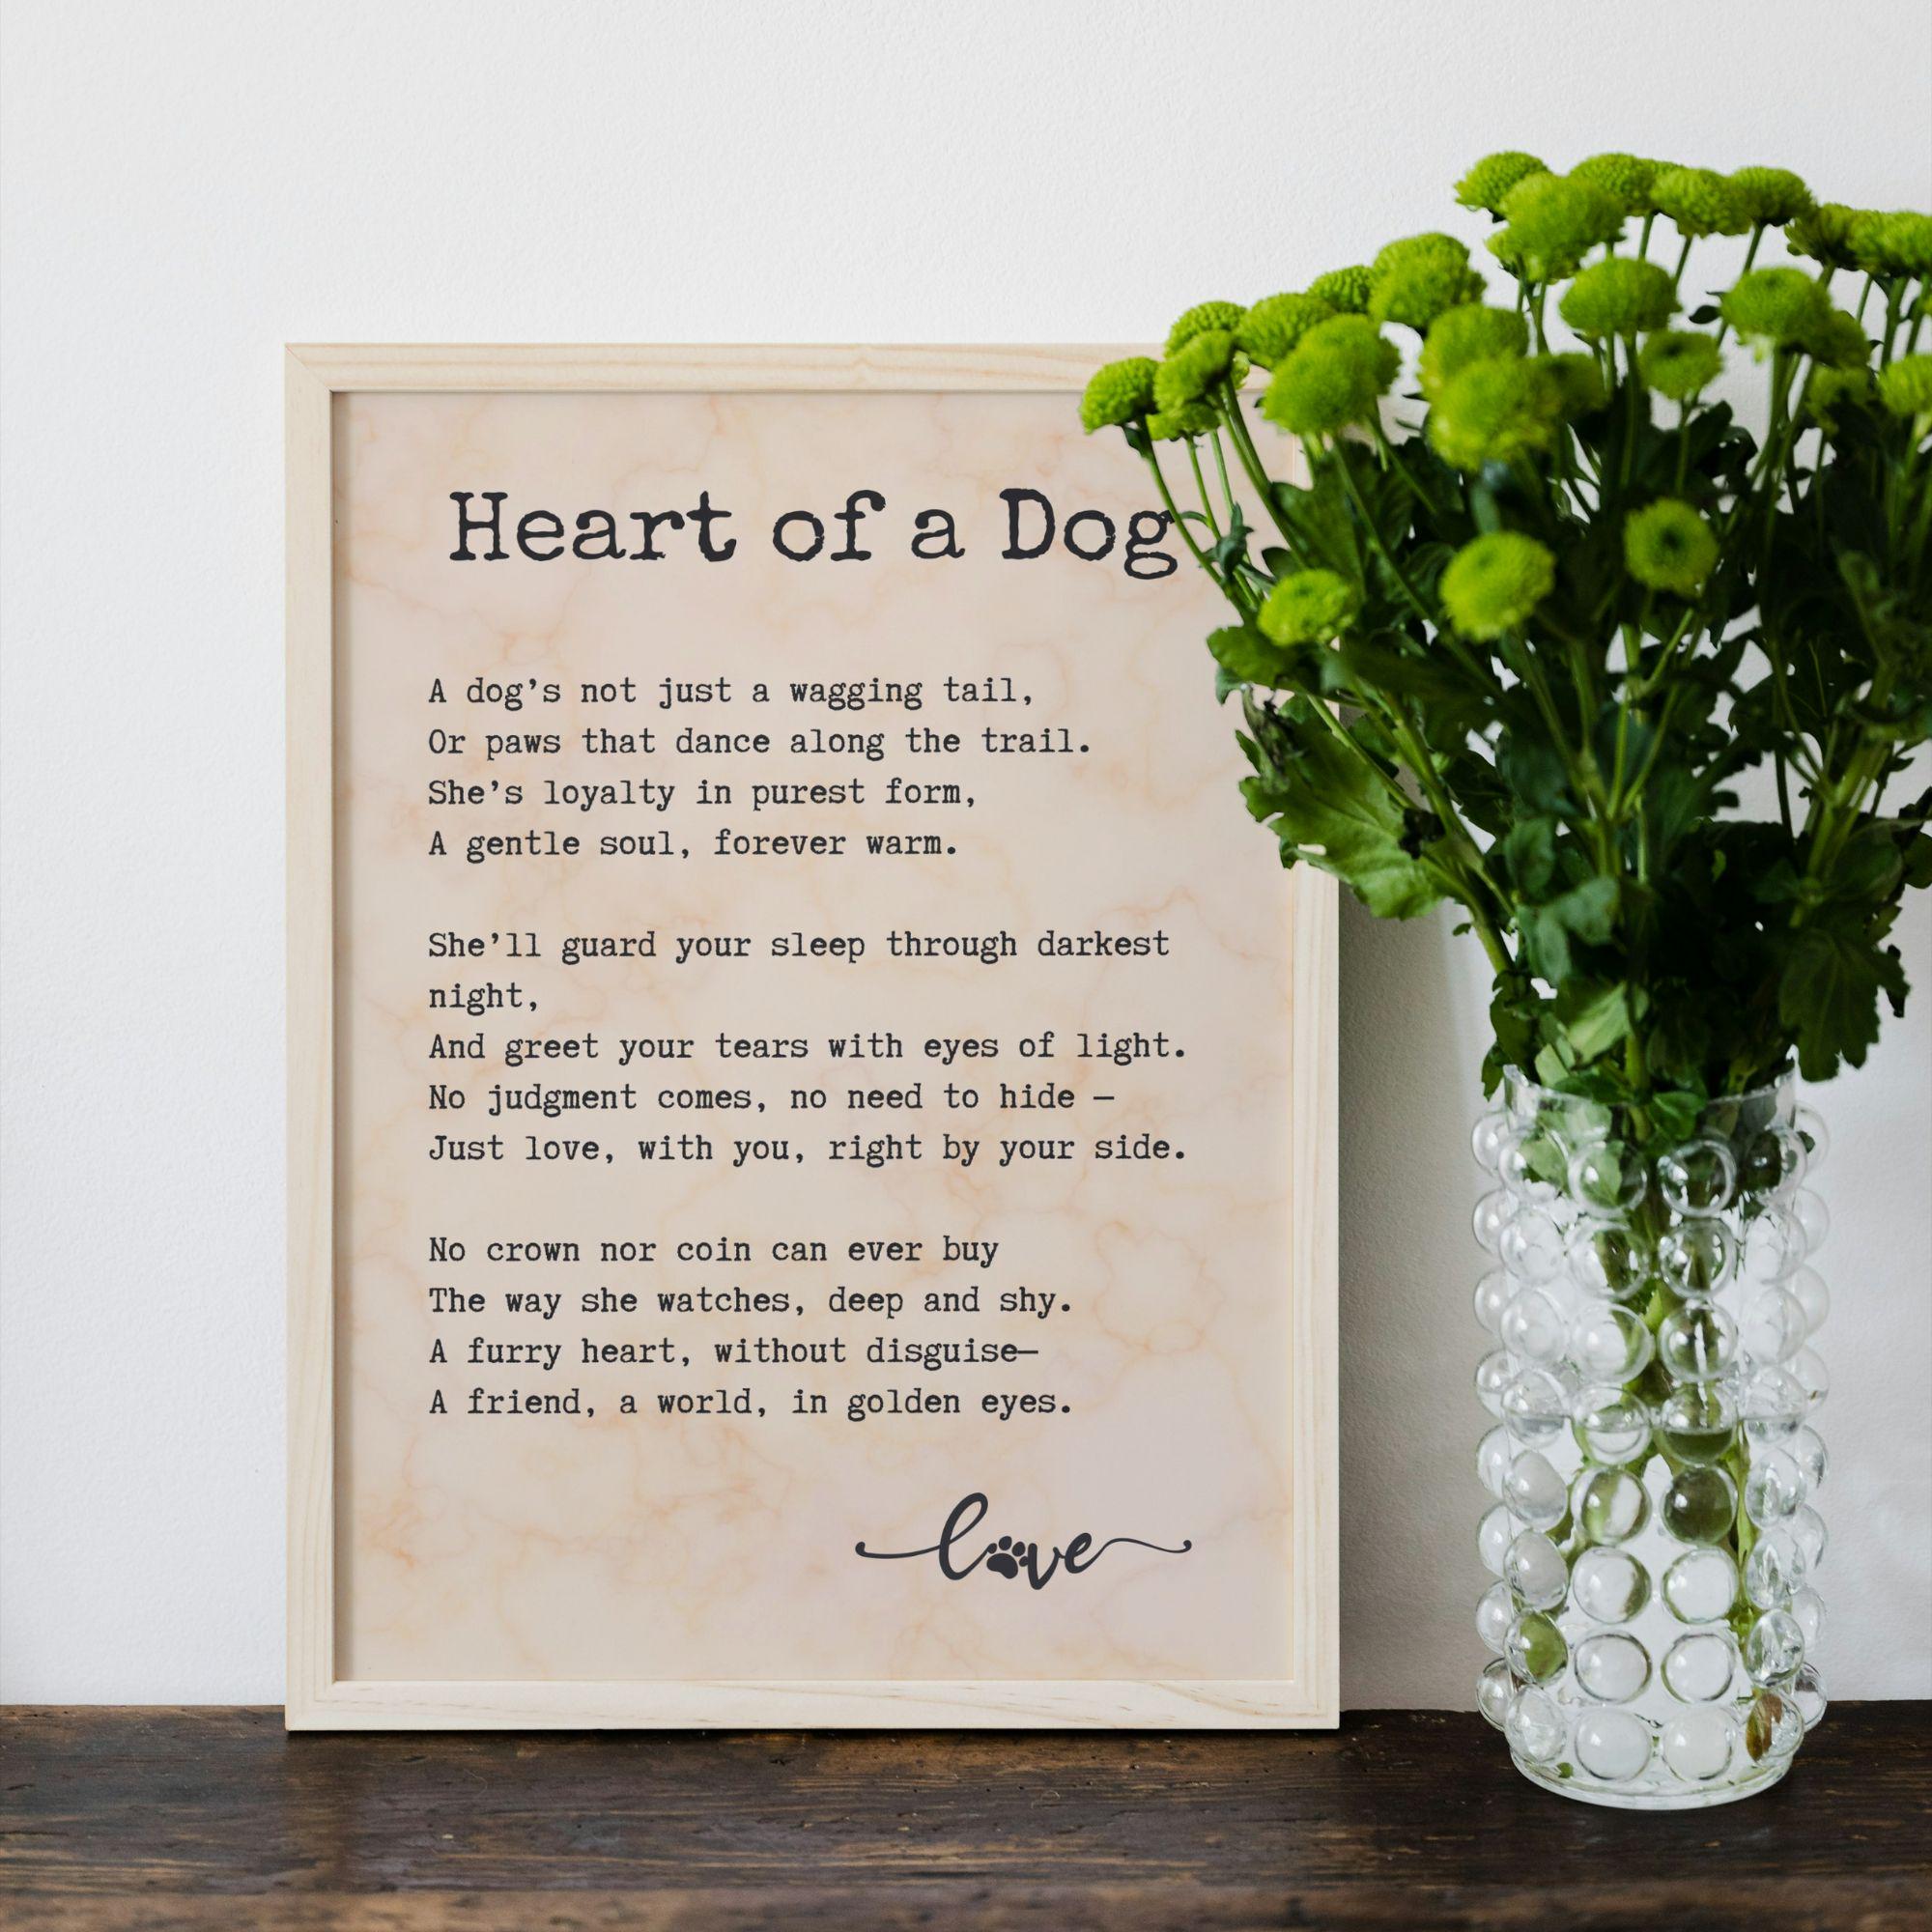 Heart of a Dog
A dog’s not just a wagging tail,
Or paws that dance along the trail.
She’s loyalty in purest form,
A gentle soul, forever warm.
She’ll guard your sleep through darkest
night,
And greet your tears with eyes of light.
No judgment comes, no need to hide –
Just love, with you, right by your side.
No crown nor coin can ever buy
The way she watches, deep and shy.
A furry heart, without disguise—
A friend, a world, in golden eyes.
love